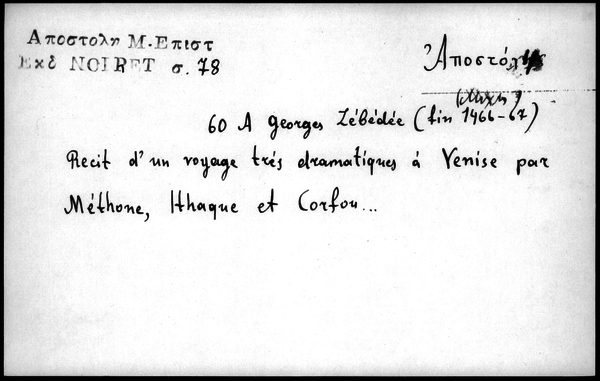 Αποστολη Μ. Επιστ
Εκδ NOIRET σ. 78
Ἀποστόλης
60 A Georges Zébédée (fin 1466-67)
Recit d'un voyage trés dramatiques á Venise par
Méthone, Ithaque et Corfou...